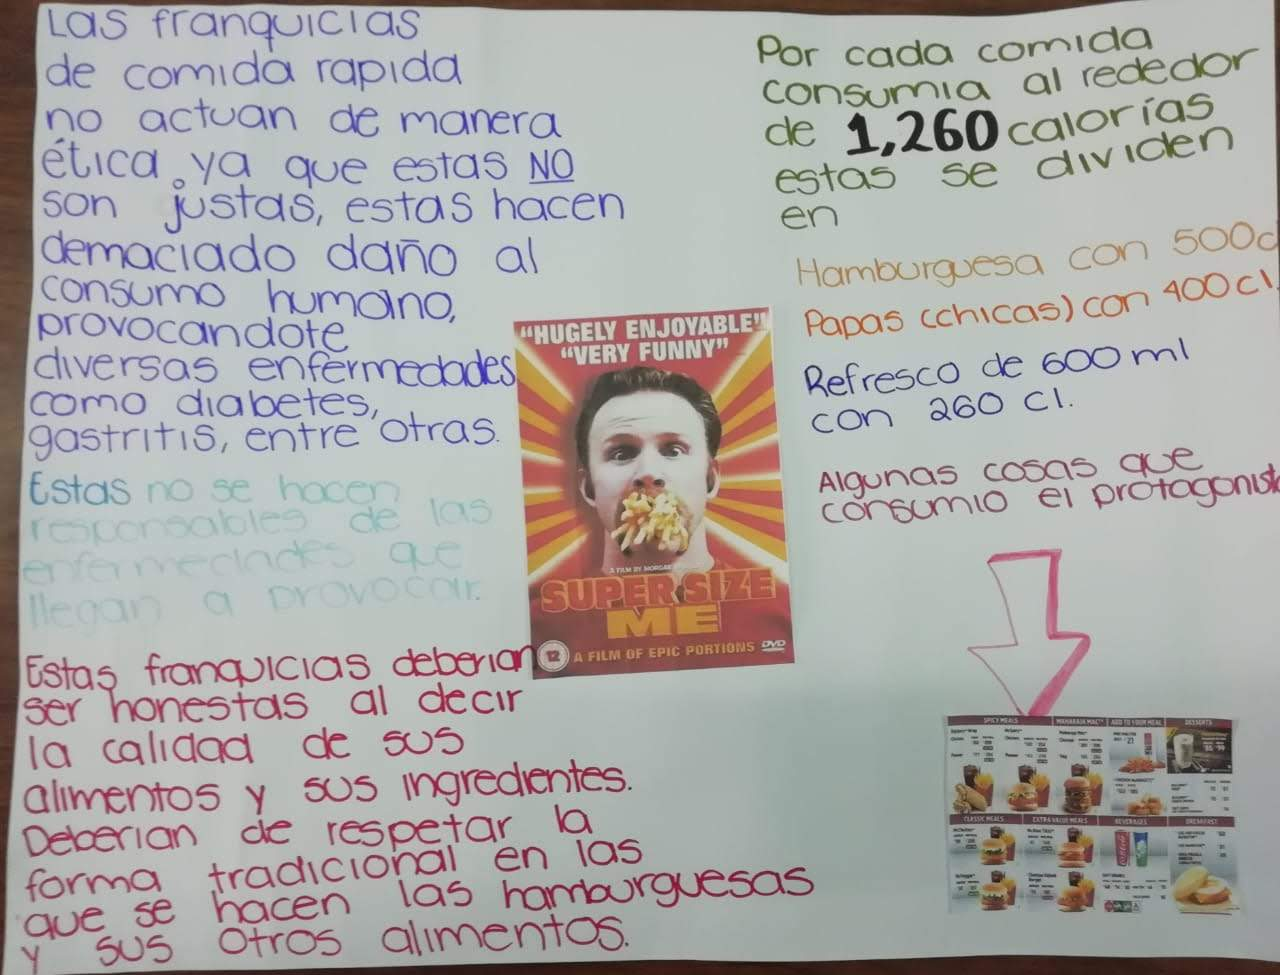 Las franquicias
de comida rapida
no actuan de manera
ética, ya que estas NO
son justas, estas hacen
demaciado daño al
consumo humano,
provocandote
diversas enfermedades
como diabetes,
gastritis, entre otras.
Estas no se hacen
responsables de las
enfermedades que
llegan a provocar.
Estas franquicias deberian
ser honestas al decir
la calidad de sus
alimentos y sus ingredientes.
Deberian de respetar la
forma tradicional en las
que se hacen las hamburguesas
y sus otros alimentos.
"HUGELY ENJOYABLE"
"VERY FUNNY"
A FILM BY MORGAN
SUPER SIZE
ME
12 A FILM OF EPIC PORTIONS DVD
Por cada comida
consumia al rededor
de 1,260 calorías
estas se dividen
en
Hamburguesa con 500c
Papas (chicas) con 400 cl.
Refresco de 600 ml
con 260 cl.
Algunas cosas que
consumio el protagonist
SPICY MEALS
MAHARAJA MAC™
ADD TO YOUR MEAL
DESSERTS
CLASSIC MEALS
EXTRA VALUE MEALS
BEVERAGES
BREAKFAST